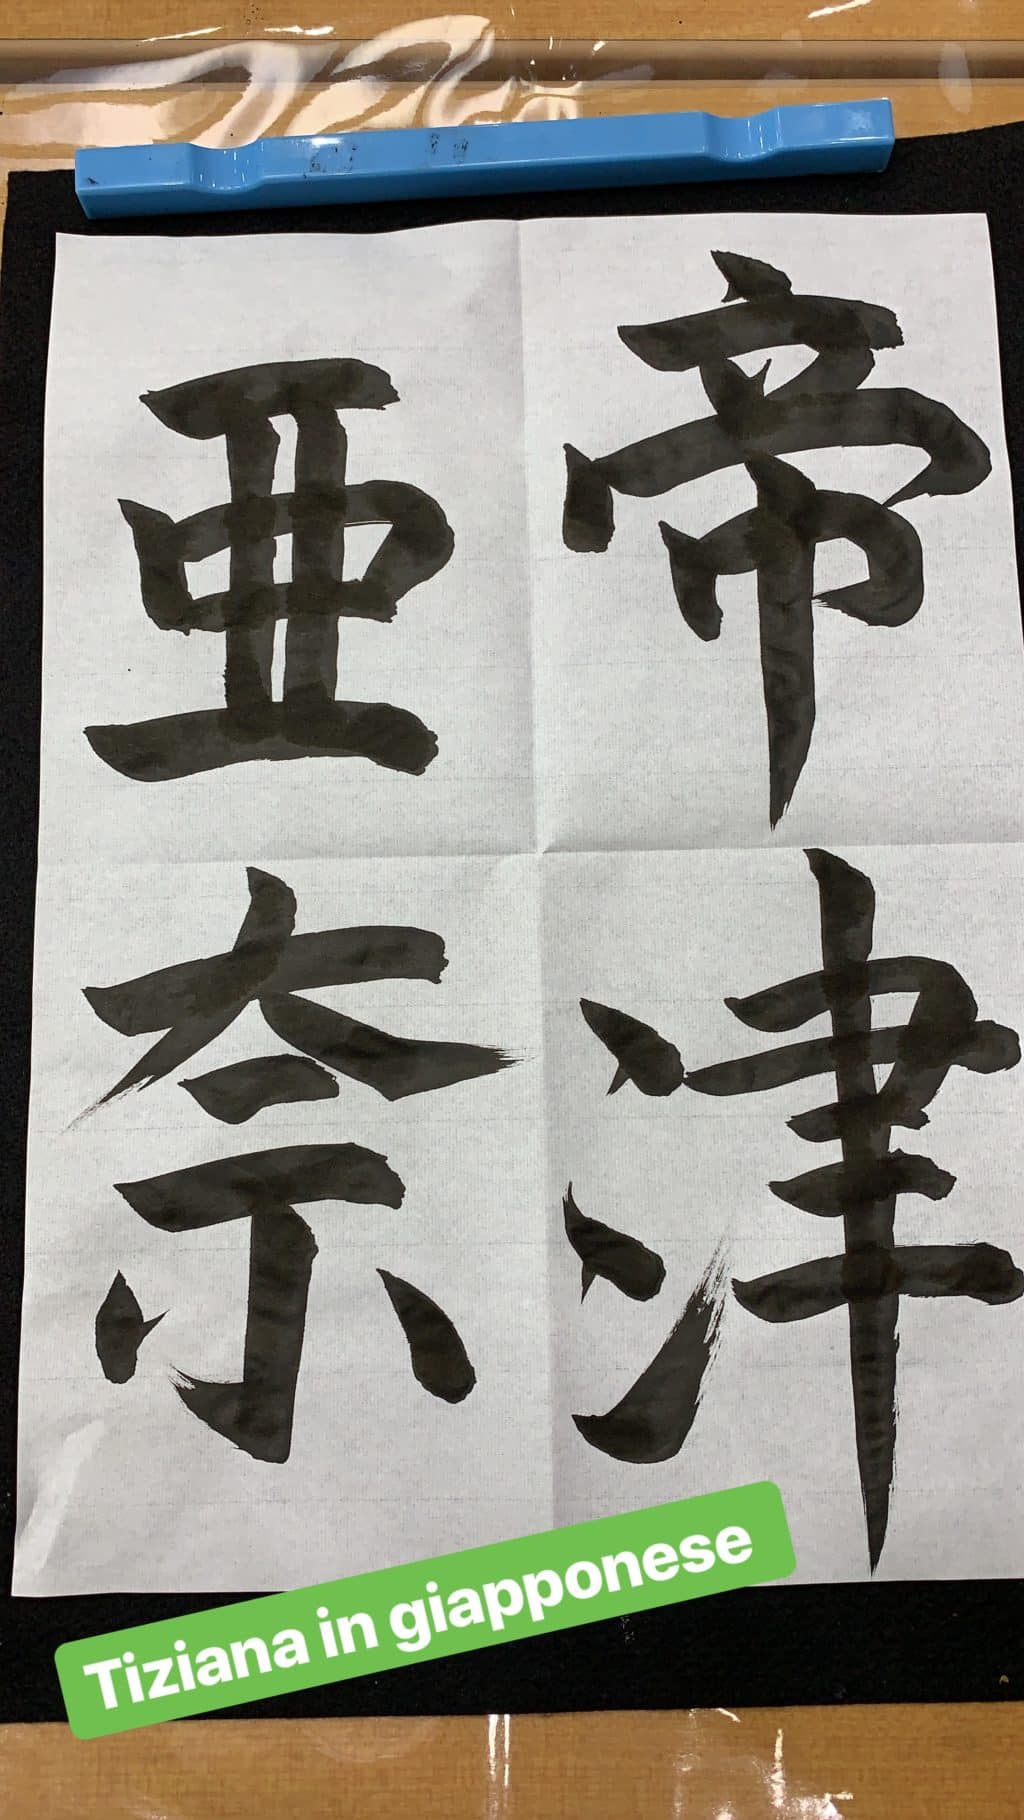 帝津
亜奈
Tiziana in giapponese